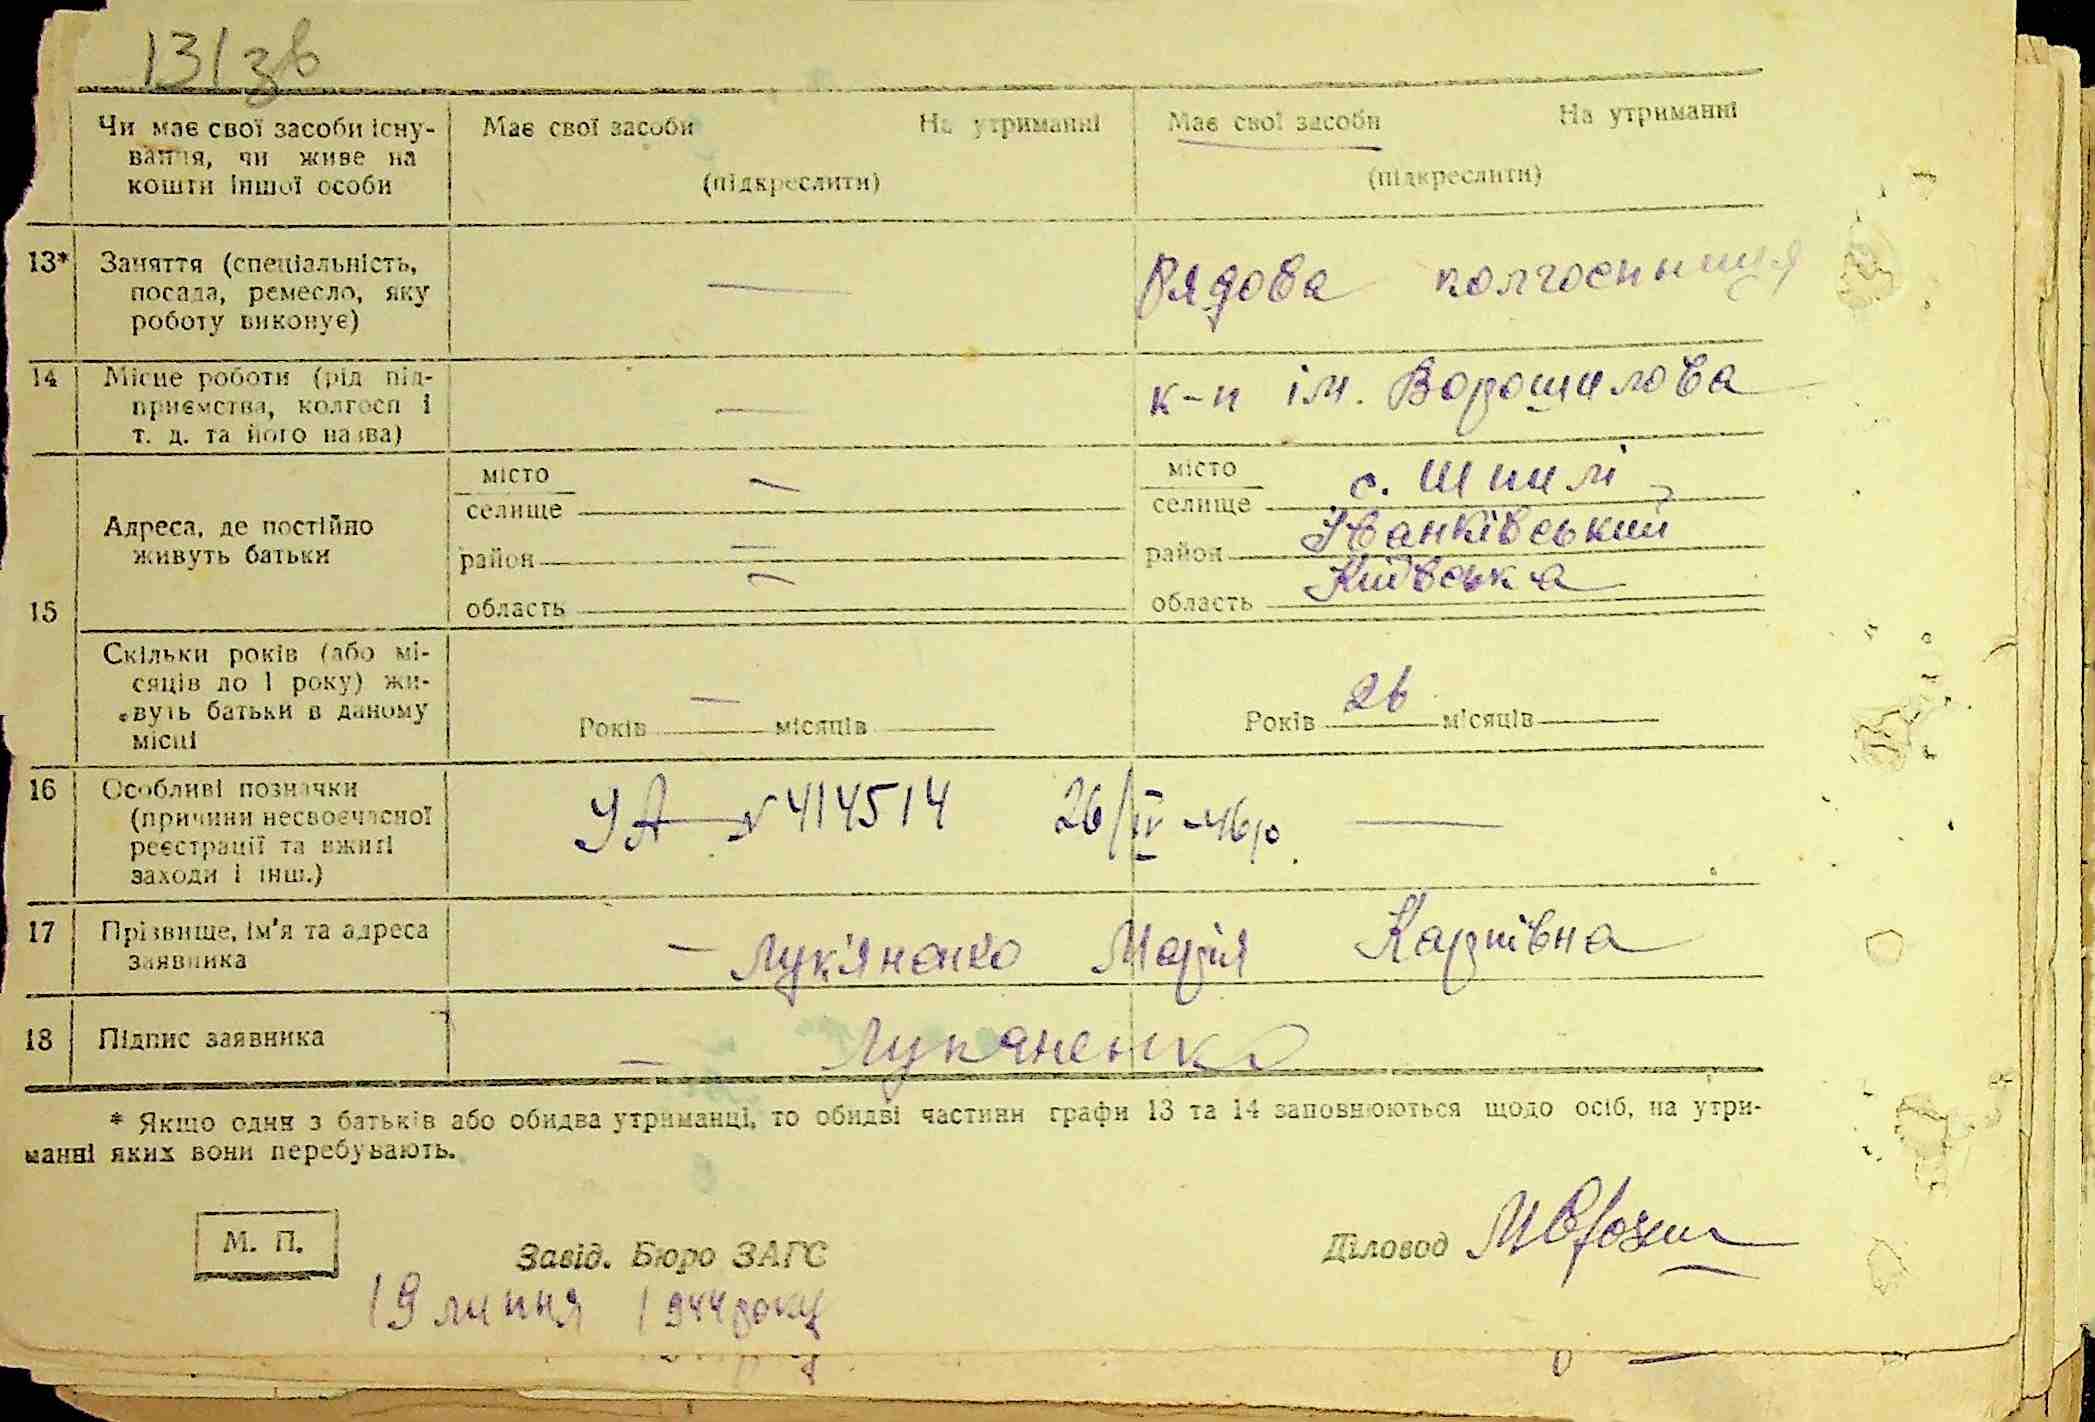 131 зв
Чи має свої засоби існу-
вання, чи живе на
кошти іншої особи
Має свої засоби На утриманні
(підкреслити)
Має свої засоби На утриманні
(підкреслити)
13* Заняття (спеціальність,
посада, ремесло, яку
роботу виконує)
— Рядова колгоспниця
14 Місце роботи (рід під-
приємства, колгосп і
т. д. та його назва)
— к-п ім. Ворошилова
15
Адреса, де постійно
живуть батьки
місто
селище —
район —
область —
місто
селище с. Шпилі
район Іванківський
область Київська
Скільки років (або мі-
сяців до 1 року) жи-
вуть батьки в даному
місці
Років — місяців
Років 26 місяців
16 Особливі позначки
(причини несвоєчасної
реєстрації та вжиті
заходи і інш.)
УА — № 414514 26/IV-46р. —
17 Прізвище, ім'я та адреса
заявника
— Лук'яненко Марія Карпівна
18 Підпис заявника
— Лукяненко
* Якщо один з батьків або обидва утриманці, то обидві частини графи 13 та 14 заповнюються щодо осіб, на утри-
манні яких вони перебувають.
М. П.
Завід. Бюро ЗАГС
Діловод
19 липня 1944 року